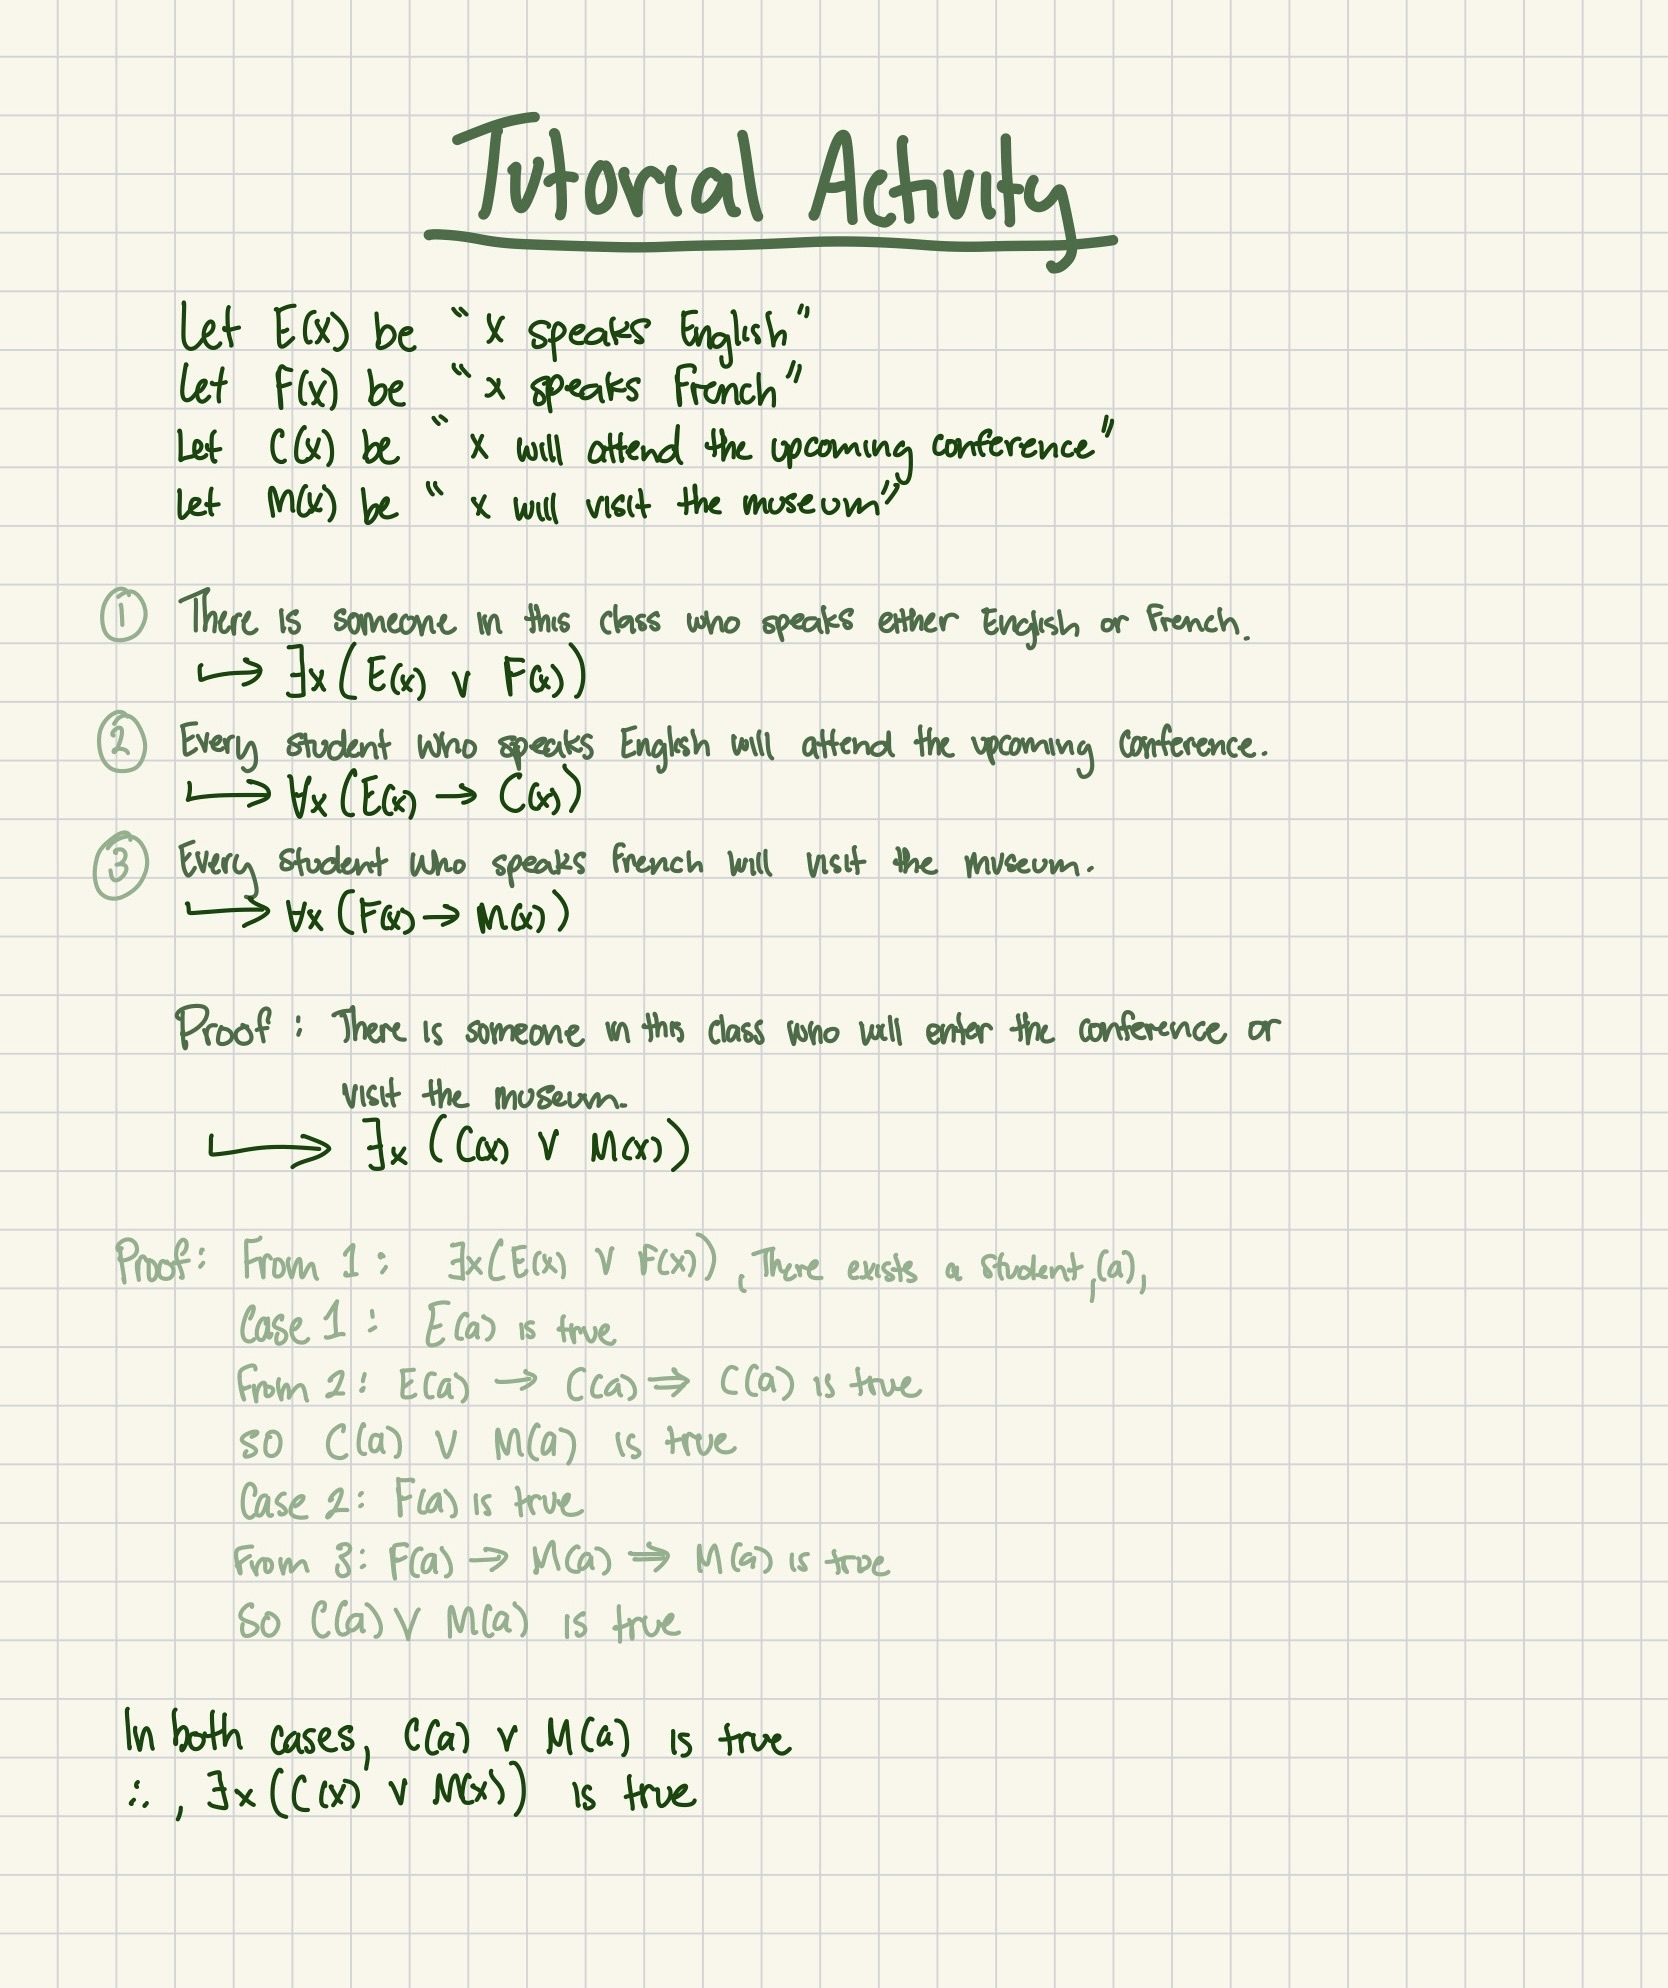 Tutorial Activity
Let E(x) be "x speaks English"
Let F(x) be "x speaks French"
Let C(x) be "x will attend the upcoming conference"
Let M(x) be "x will visit the museum"
① There is someone in this class who speaks either English or French.
↳ ∃x (E(x) ∨ F(x))
② Every student who speaks English will attend the upcoming conference.
↳ ∀x (E(x) → C(x))
③ Every student who speaks French will visit the museum.
↳ ∀x (F(x) → M(x))
Proof : There is someone in this class who will enter the conference or
visit the museum.
↳ ∃x (C(x) ∨ M(x))
Proof: From 1 : ∃x(E(x) ∨ F(x)), There exists a student, (a),
Case 1 : E(a) is true
From 2: E(a) → C(a) ⇒ C(a) is true
so C(a) ∨ M(a) is true
Case 2: F(a) is true
From 3: F(a) → M(a) ⇒ M(a) is true
So C(a) ∨ M(a) is true
In both cases, C(a) ∨ M(a) is true
∴, ∃x (C(x) ∨ M(x)) is true